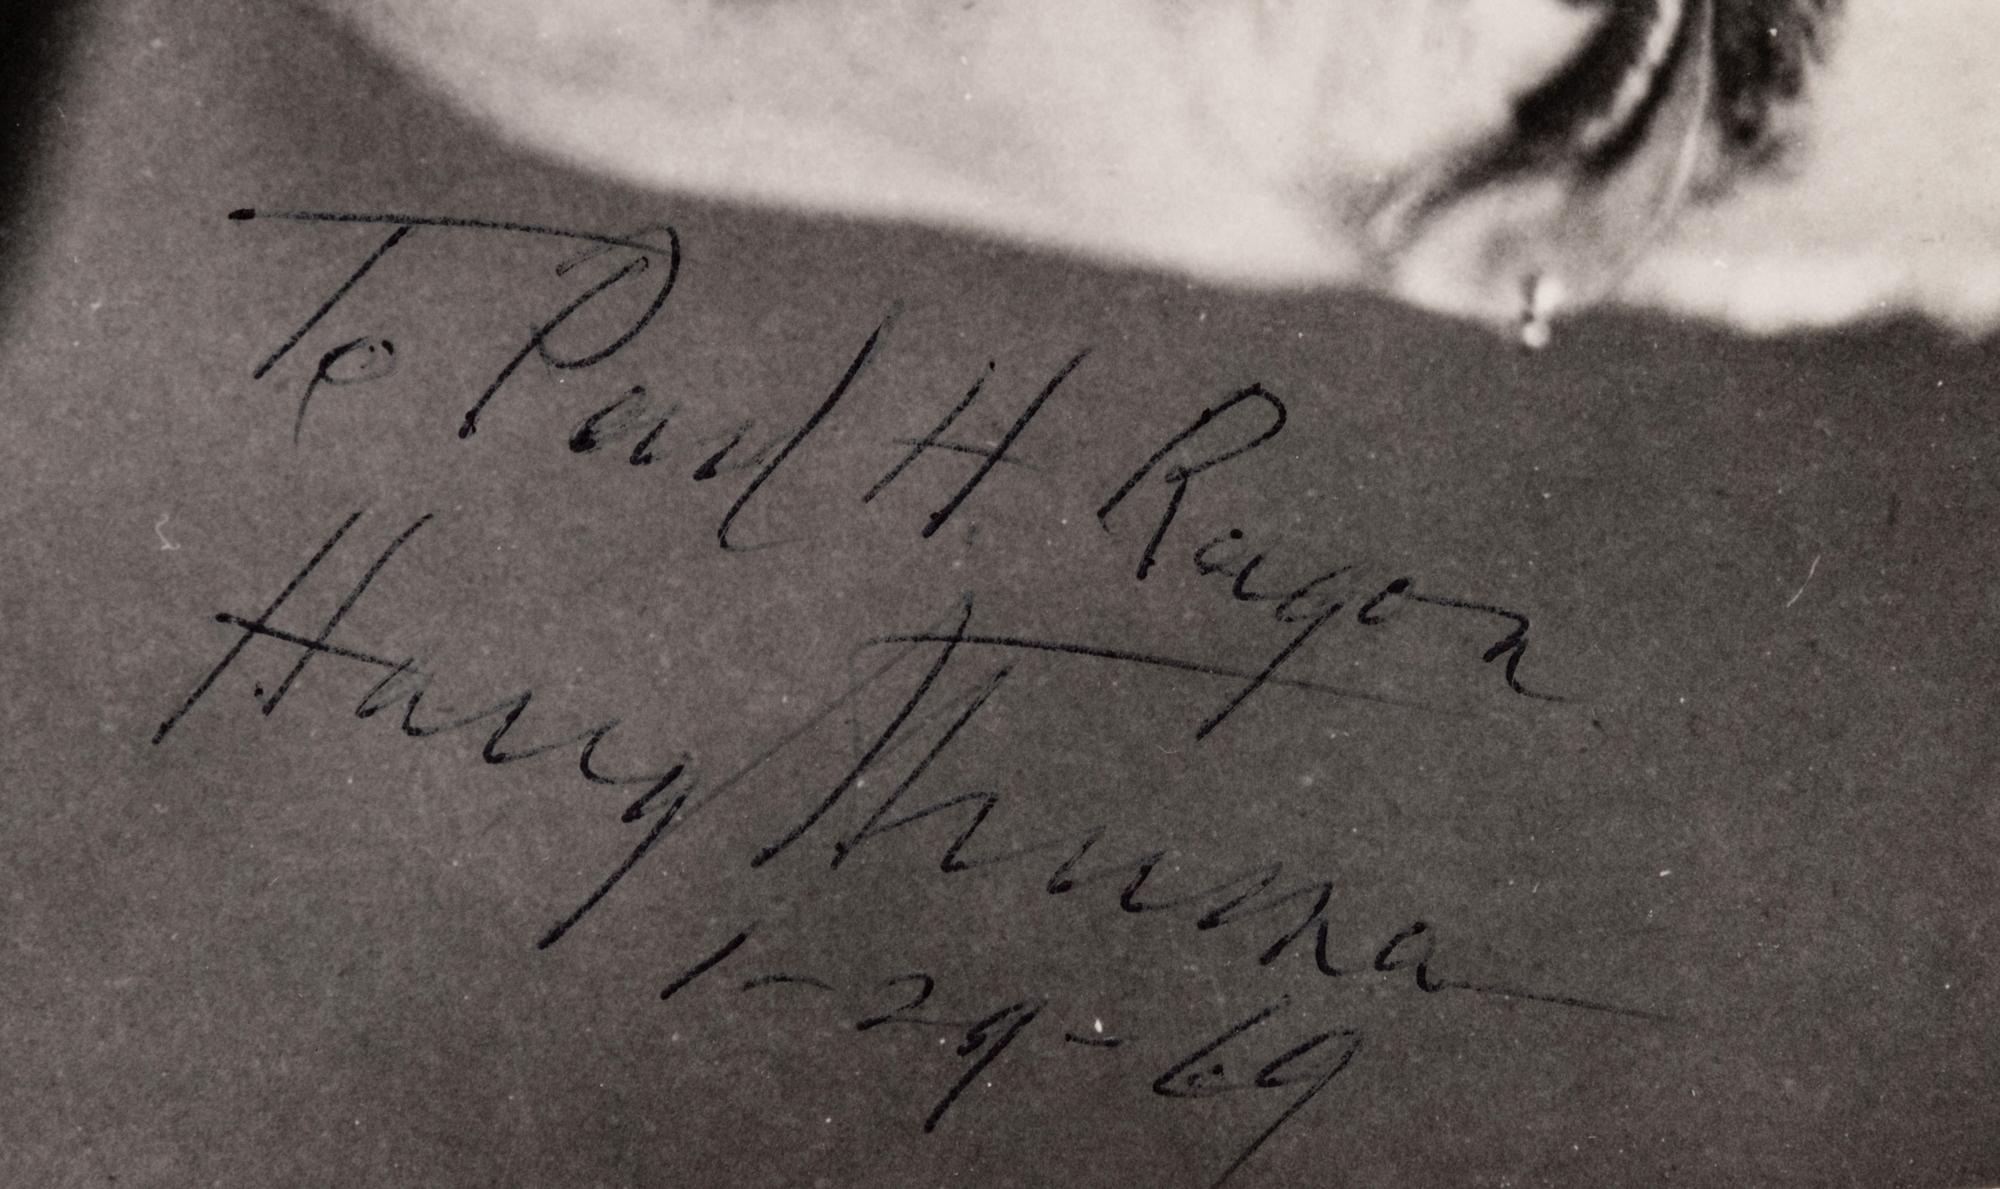 To Paul H. Ragon
Harry Truman
1-29-69